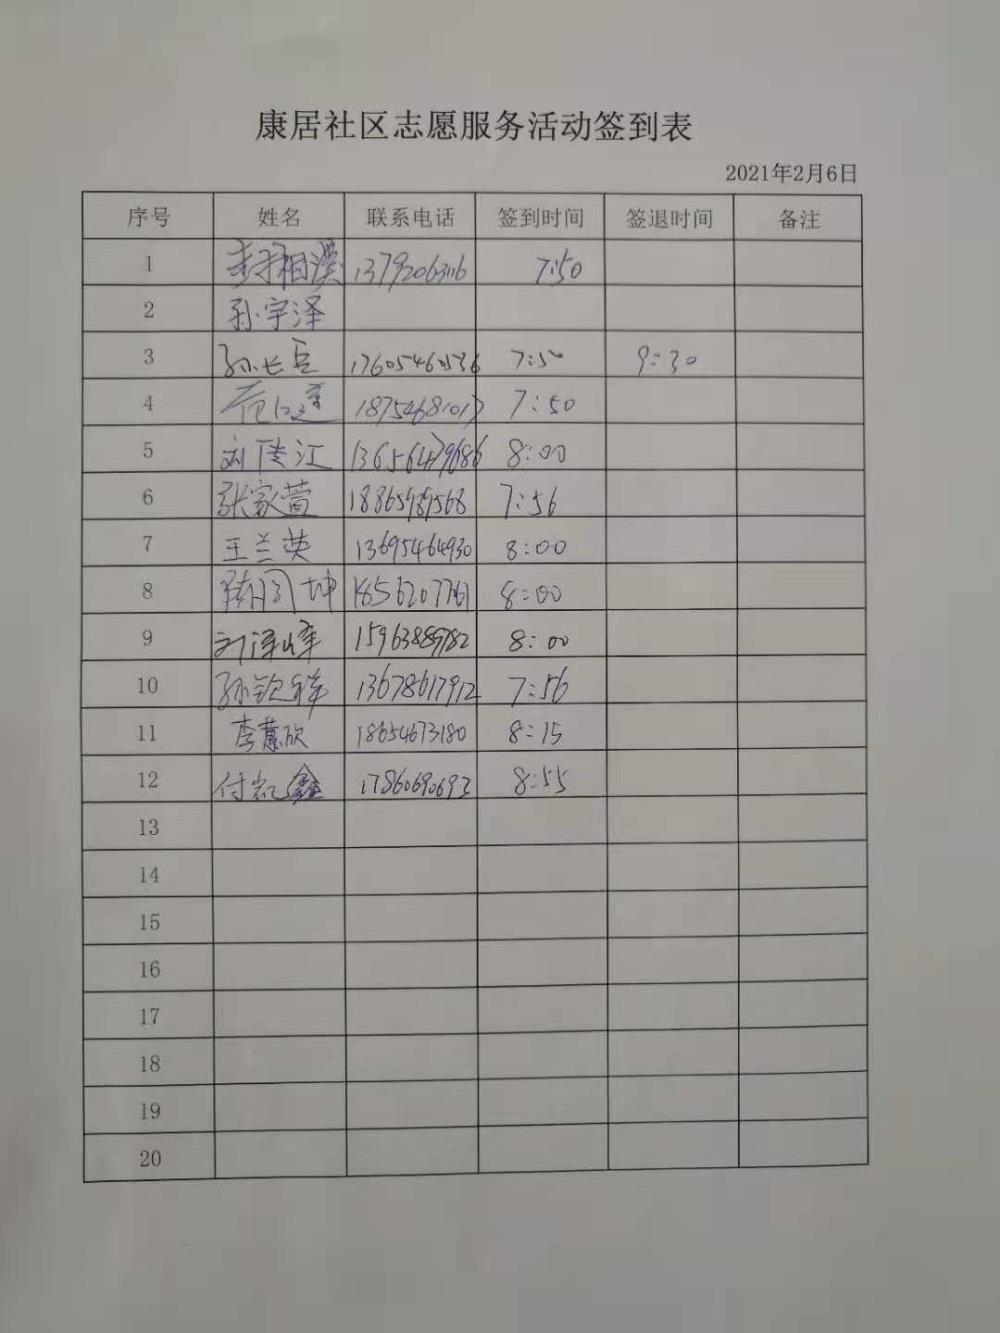 康居社区志愿服务活动签到表
2021年2月6日
序号 姓名 联系电话 签到时间 签退时间 备注
1 7:50
2 孙宇泽
3 孙长臣 17605460536 7:50 9:30
4 范 18754681017 7:50
5 刘传江 13656479686 8:00
6 张家萱 18865989568 7:56
7 王兰英 13695464930 8:00
8 坤 18561207761 8:00
9 刘泽峰 15963889782 8:00
10 孙钦祥 13678617912 7:56
11 李蕙欣 18654673180 8:15
12 付凯鑫 17860690693 8:55
13
14
15
16
17
18
19
20